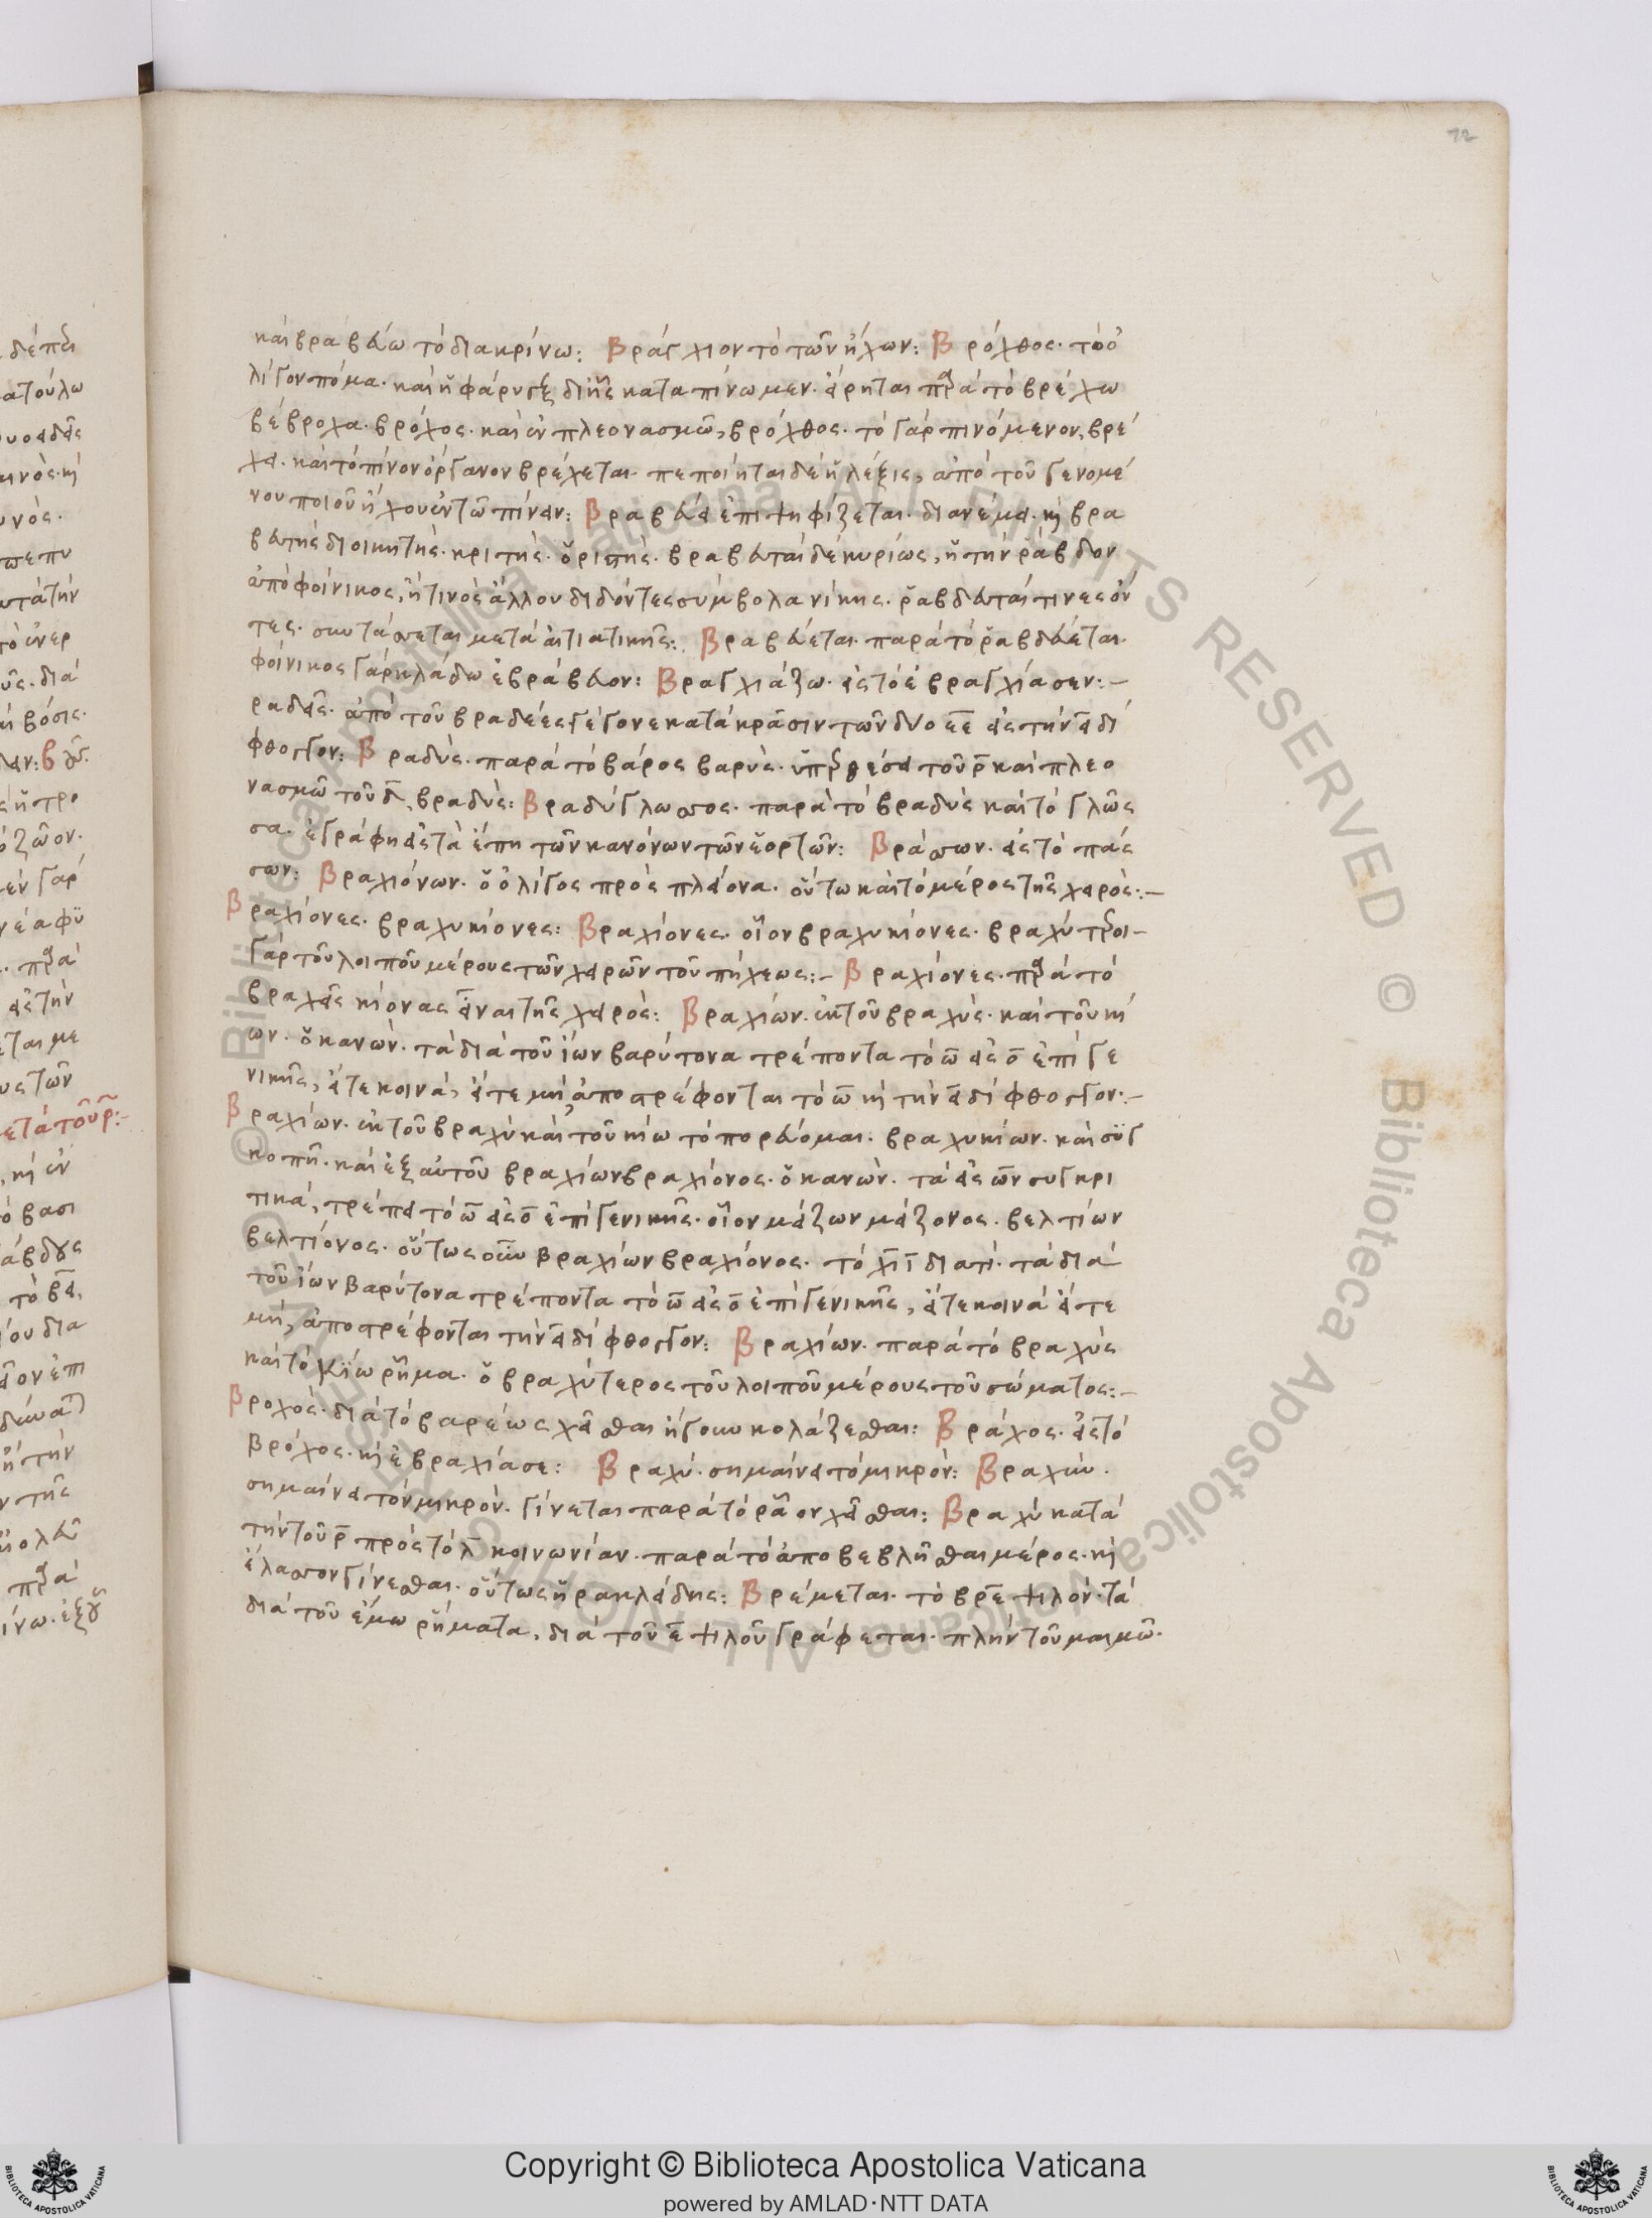 72
καὶ βραβεύω τὸ διακρίνω: Βράγχιον τὸ τῶν ἠχων: Βρόχθος· τὸ ὀ
λίγον πόμα· καὶ ἡ φάρυγξ δι ἧς καταπίνωμεν· εἴρηται παρὰ τὸ βρέχω
βέβροχα· βρόχος· καὶ ἐν πλεονασμῶ, βρόχθος· τὸ γὰρ πινόμενον, βρέ
χει· καὶ τὸ πίνον ὄργανον βρέχεται· πεποίηται δὲ ἡ λέξις, ἀπὸ τοῦ γενομέ
νου ποιοῦ ἤχου ἐν τῶ πίνειν: Βραβεύει ἐπιψηφίζεται· διανέμει· κὶ βρα
βευτὴς διοικητής· κριτής· ὁριστής· βραβευταὶ δὲ κυρίως, ἢ τὴν ῥάβδον
ἀπὸ φοίνικος, ἤ τινος ἄλλου διδόντες σύμβολα νίκης· ῥαβδευταί τινες ὄν
τες· συντάσσεται μετὰ αἰτιατικῆς: Βραβεύεται· παρὰ τὸ ῥαβδεύεται·
φοίνικος γὰρ κλάδω ἐβράβευον: Βραγχιάζω· εἰς τὸ ἐβραγχίασεν:–
ραδεῖς· ἀπὸ τοῦ βραδέες γέγονε κατὰ κρᾶσιν τῶν δύο εε εἰς τὴν ει δί
φθογγον: Βραδὺς· παρὰ τὸ βάρος βαρὺς· ὑπερθέσει τοῦ ρ καὶ πλεο
νασμῶ τοῦ δ, βραδὺς: Βραδύγλωσσος· παρὰ τὸ βραδὺς καὶ τὸ γλῶς
σα· ἐγράφη εἰς τὰ ἔπη τῶν κανόνων τῶν ἑορτῶν: Βράσσων· εἰς τὸ πάς
σων: Βραχιόνων· ὁ ὀλίγος πρὸς πλείονα· οὕτω καὶ τὸ μέρος τῆς χειρός:–
Βραχίονες· βραχυκίονες: Βραχίονες· οἷον βραχυκίονες· βραχύτεροι–
γὰρ τοῦ λοιποῦ μέρους τῶν χειρῶν τοῦ πήχεως:– Βραχίονες· παρὰ τὸ
βραχεῖς κίονας εἶναι τῆς χειρός: Βραχίων· ἐκ τοῦ βραχὺς· καὶ τοῦ κί
ων· ὁ κανών· τὰ διὰ τοῦ ίων βαρύτονα τρέποντα τὸ ω εἰς ο ἐπὶ γε
νικῆς, εἴτε κοινά, εἴτε μή, ἀποστρέφονται τὸ ω κὶ τὴν ει δίφθογγον:–
Βραχίων· ἐκ τοῦ βραχὺ καὶ τοῦ κίω τὸ πορεύομαι· βραχυκίων· καὶ συγ
κοπῆ· καὶ ἐξ αὐτοῦ βραχίων βραχίονος· ὁ κανών· τὰ εἰς ων συγκρι
τικά, τρέπει τὸ ω εἰς ο ἐπὶ γενικῆς· οἷον μείζων μείζονος· βελτίων
βελτίονος· οὕτως οὖν βραχίων βραχίονος· τὸ χι ι διατί· τὰ διὰ
τοῦ ίων βαρύτονα τρέποντα τὸ ω εἰς ο ἐπὶ γενικῆς, εἴτε κοινὰ εἴτε
μή, ἀποστρέφονται τὴν ει δίφθογγον: Βραχίων· παρὰ τὸ βραχὺς
καὶ τὸ κίω ῥῆμα· ὁ βραχύτερος τοῦ λοιποῦ μέρους τοῦ σώματος:–
Βροχὸς· διὰ τὸ βαρέως χεῖσθαι ἤγουν κολάζεσθαι: Βράχος· εἰς τὸ
βρόχος· κὶ ἐβραχίασε: Βραχύ· σημαίνει τὸ μικρόν: Βραχύν·
σημαίνει τὸν μικρόν· γίνεται παρὰ τὸ ρᾶον χεῖσθαι: Βραχὺ κατὰ
τὴν τοῦ ρ πρὸς τὸ λ κοινωνίαν· παρὰ τὸ ἀποβεβλῆσθαι μέρος· κὶ
ἔλασσον γίνεσθαι· οὕτως ἡρακλείδης: Βρέμεται· τὸ βρε ψιλόν· τὰ
διὰ τοῦ έμω ῥήματα, διὰ τοῦ ε ψιλοῦ γράφεται· πλὴν τοῦ μαιμῶ·
Copyright © Biblioteca Apostolica Vaticana
powered by AMLAD·NTT DATA